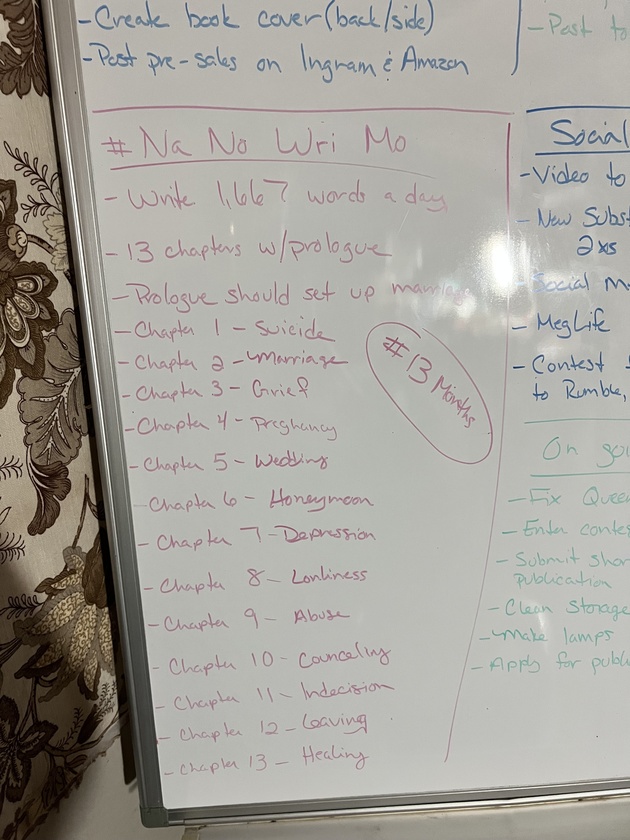 - Create book cover (back/side)
- Post pre-sales on Ingram & Amazon
# Na No Wri Mo
- Write 1,667 words a day
- 13 chapters w/prologue
- Prologue should set up marriage
- Chapter 1 - Suicide
- Chapter 2 - Marriage
- Chapter 3 - Grief
- Chapter 4 - Pregnancy
- Chapter 5 - Wedding
- Chapter 6 - Honeymoon
- Chapter 7 - Depression
- Chapter 8 - Lonliness
- Chapter 9 - Abuse
- Chapter 10 - Counceling
- Chapter 11 - Indecision
- Chapter 12 - Leaving
- Chapter 13 - Healing
#13 Months
- Post to
Social
- Video to
- New Subst
2xs
- Social M
- MegLife
- Contest
to Rumble,
On goi
- Fix Queen
- Enter contes
- Submit shor
publication
- Clean Storage
- Make lamps
- Apply for publi